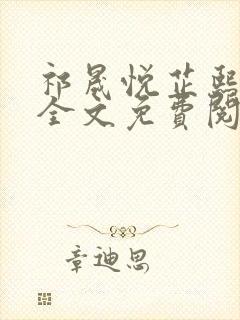 祁晟悦芷熙
全文免费阅
章迪思